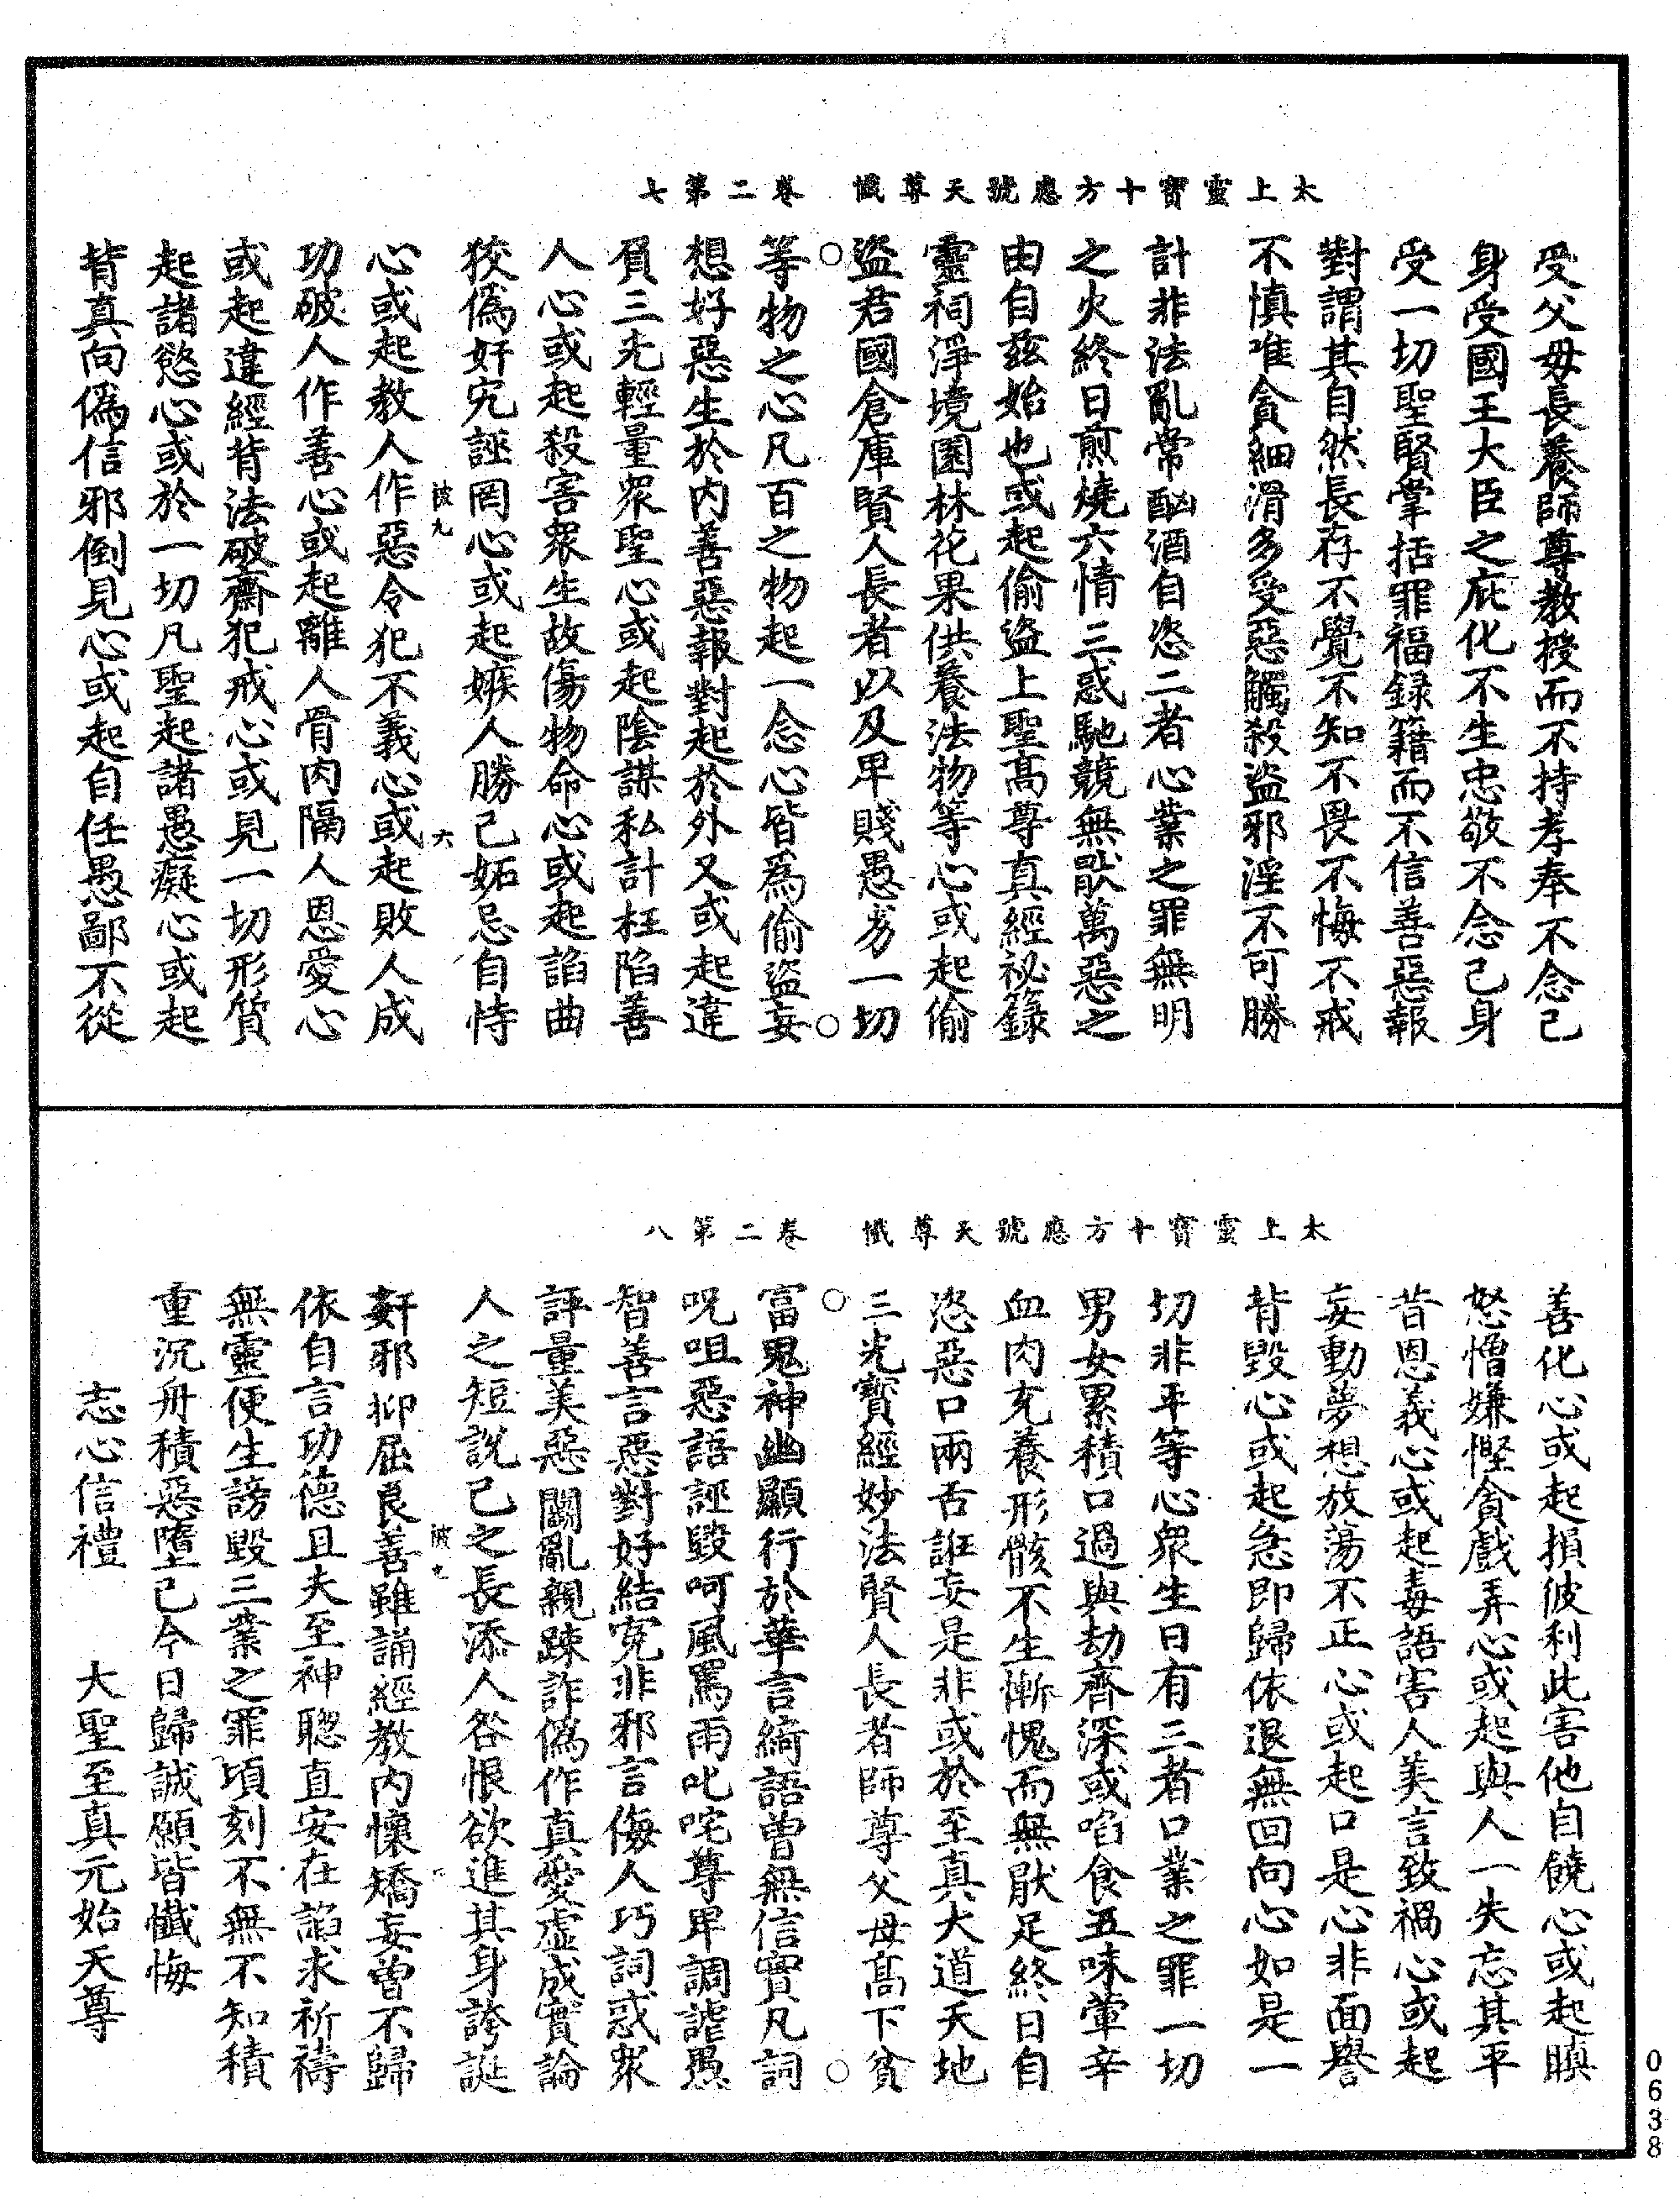 太上靈寶十方應號天尊懺　卷二第七
受父母長養師尊教授而不持孝奉不念己
身受國王大臣之庇化不生忠敬不念己身
受一切聖賢掌括罪福録籍而不信善惡報
對謂其自然長存不覺不知不畏不悔不戒
不慎唯貪細滑多受惡觸殺盜邪淫不可勝
計非法亂常酗酒自恣二者心業之罪無明
之火終日煎燒六情三惑馳競無猒萬惡之
由自兹始也或起偷盜上聖高尊真經祕籙
靈祠淨境園林花果供養法物等心或起偷
盜君國倉庫賢人長者以及卑賤愚劣一切
等物之心凡百之物起一念心皆爲偷盜妄
想好惡生於内善惡報對起於外又或起違
負三光輕量衆聖心或起陰謀私計枉陷善
人心或起殺害衆生故傷物命心或起諂曲
狡僞奸宄誣罔心或起嫉人勝己妬忌自恃
心或起教人作惡令犯不義心或起敗人成
功破人作善心或起離人骨肉隔人恩愛心
或起違經背法破齋犯戒心或見一切形質
起諸慾心或於一切凡聖起諸愚癡心或起
背真向僞信邪倒見心或起自任愚鄙不從
被九
六
太上靈寶十方應號天尊懺　卷二第八
善化心或起損彼利此害他自饒心或起瞋
怒憎嫌慳貪戲弄心或起與人一失忘其平
昔恩義心或起毒語害人美言致禍心或起
妄動夢想放蕩不正心或起口是心非面譽
背毀心或起急即歸依退無回向心如是一
切非平等心衆生日有三者口業之罪一切
男女累積口過與劫齊深或啗食五味葷辛
血肉充養形骸不生慚愧而無猒足終日自
恣惡口兩舌誑妄是非或於至真大道天地
三光寳經妙法賢人長者師尊父母高下貧
富鬼神幽顯行於華言綺語曽無信實凡詞
呪咀惡語誣毀呵風罵雨叱咤尊卑調謔愚
智善言惡對好結寃非邪言侮人巧詞惑衆
評量美惡鬬亂親踈詐僞作真憂虛成實論
人之短説己之長添人咎恨欲進其身誇誕
姧邪抑屈良善雖誦經教内懷矯妄曽不歸
依自言功德且夫至神聦直安在諂求祈禱
無靈便生謗毀三業之罪頃刻不無不知積
重沉舟積惡墮己今日歸誠願皆懺悔
志心信禮　大聖至真元始天尊
0638